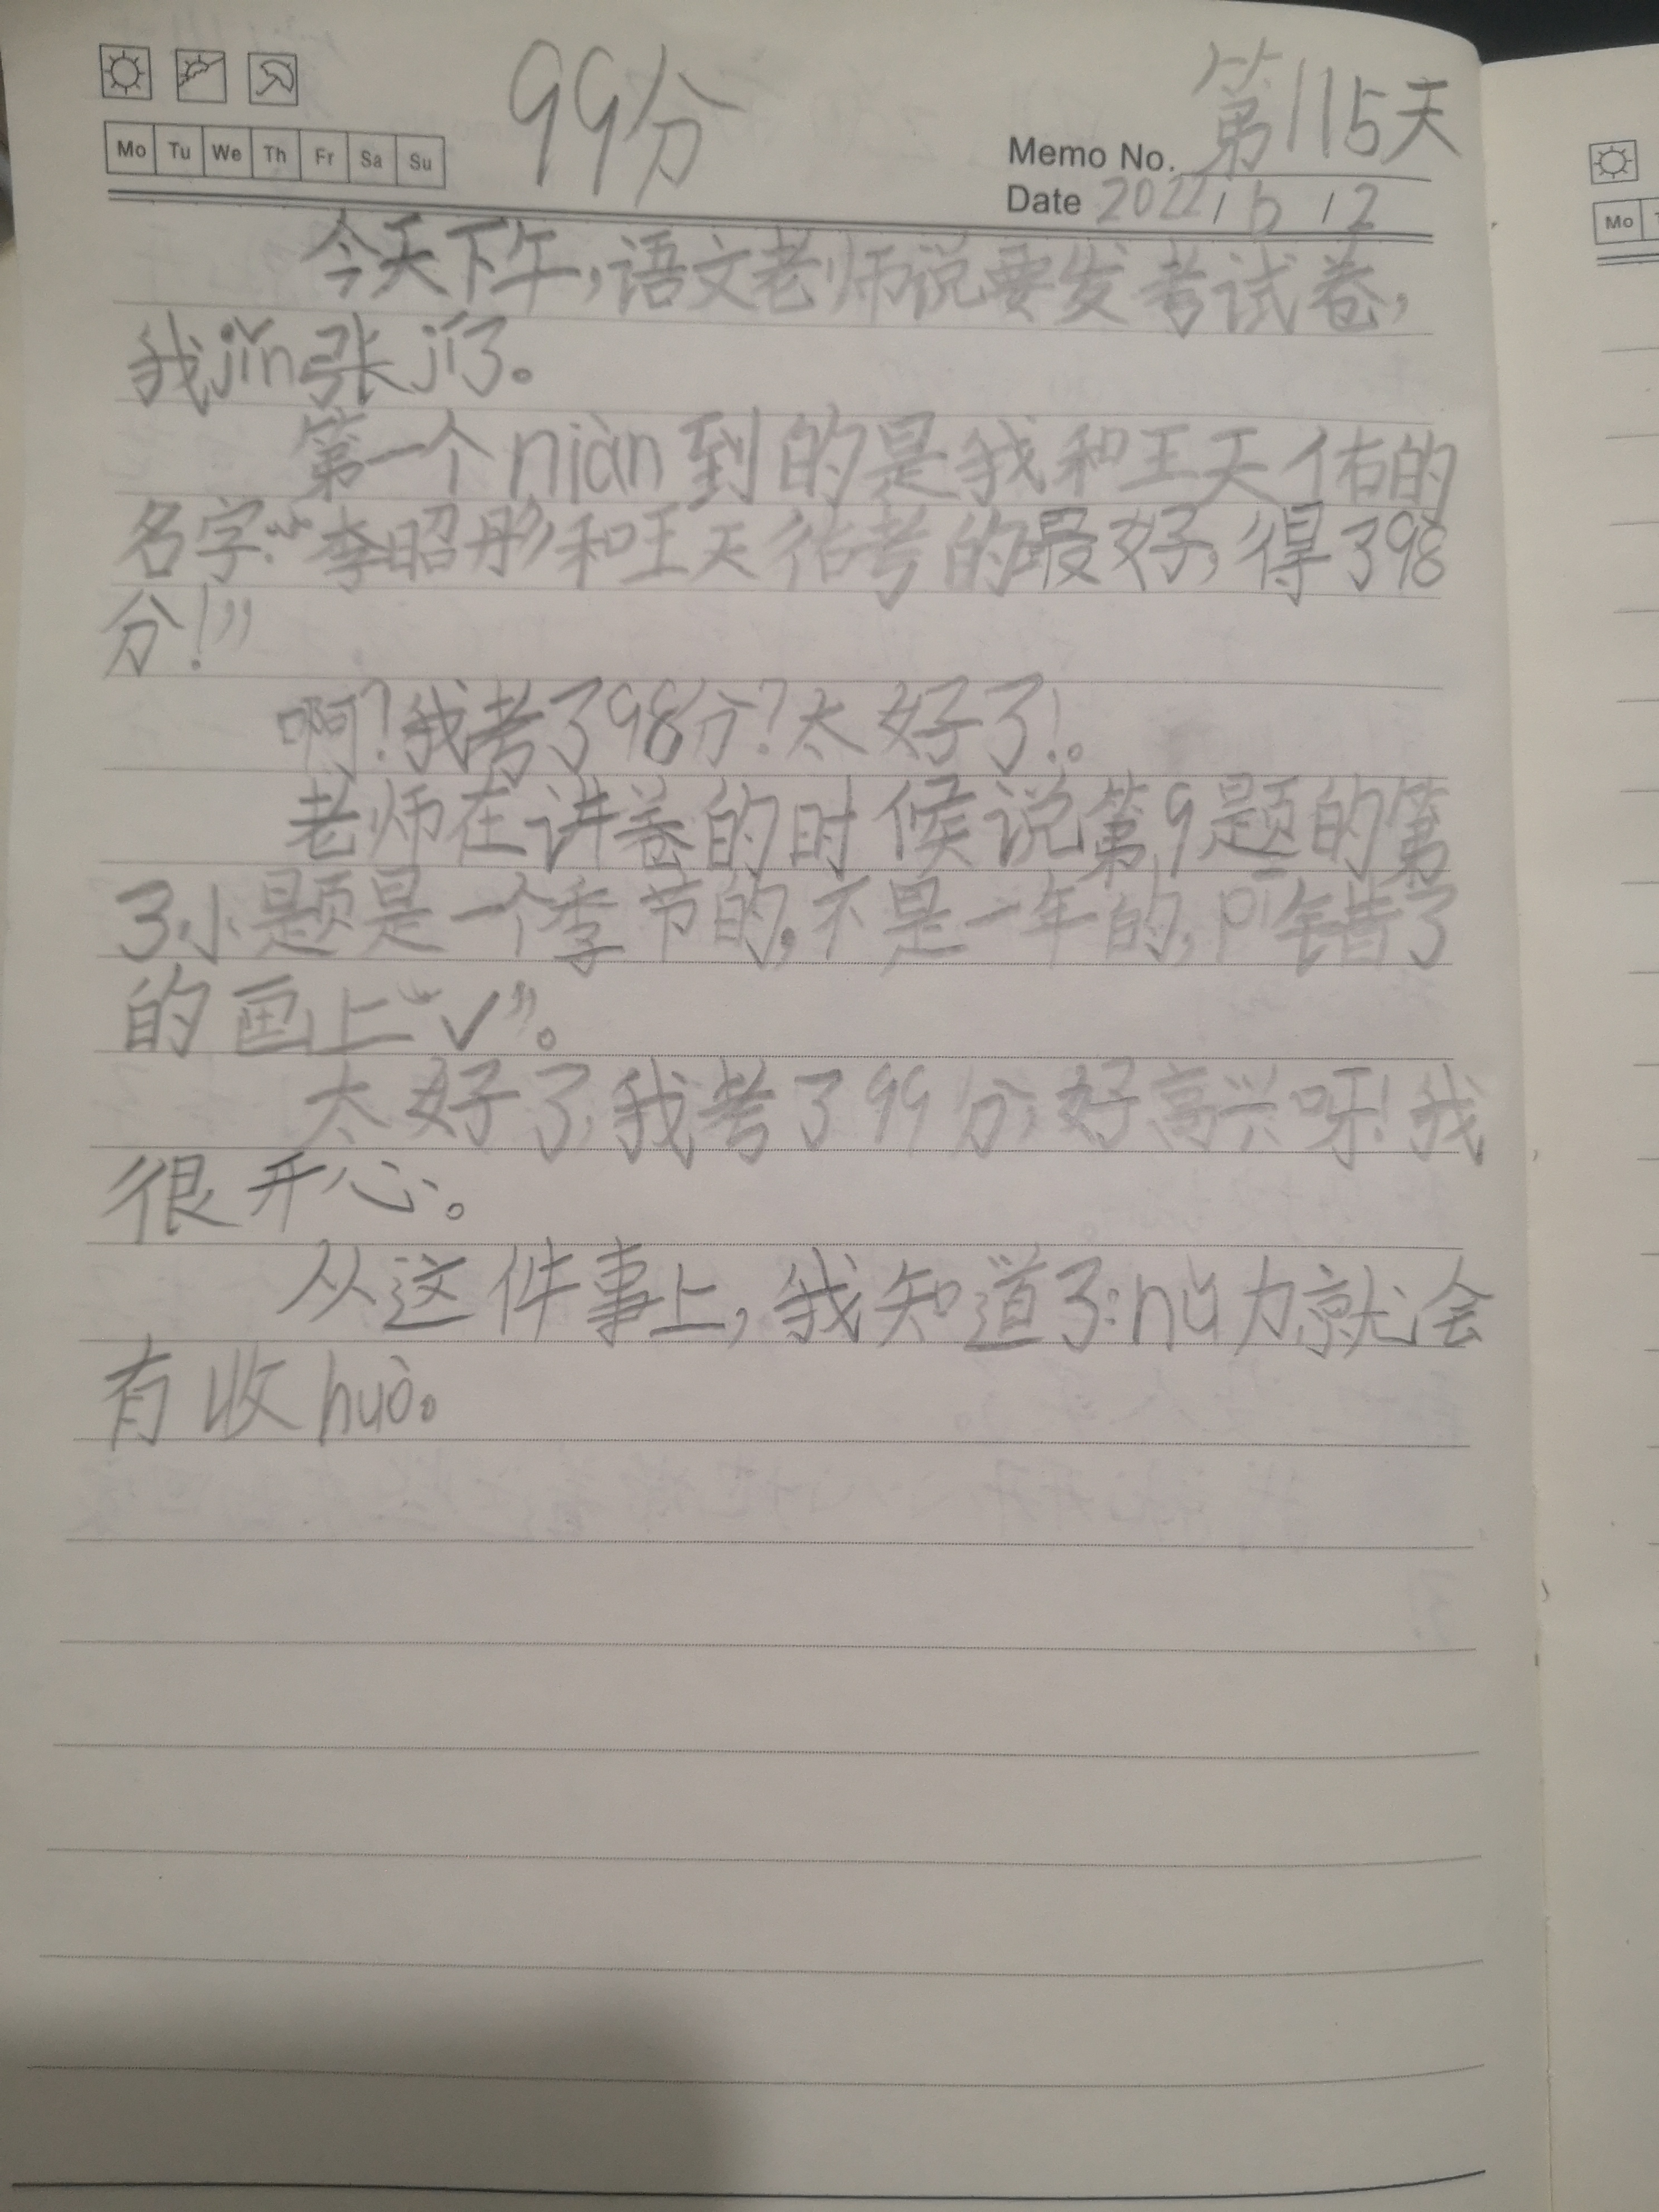 99分
第115天
Mo Tu We Th Fr Sa Su
Memo No.
Date 2022/6/2
今天下午,语文老师说要发考试卷,
我jǐn张jí了。
第一个niàn到的是我和王天佑的
名字:“李昭彤和王天佑考的最好,得了98
分!”
啊?我考了98分?太好了!。
老师在讲卷的时候说第9题的第
3小题是一个季节的,不是一年的,pī错了
的画上“✓”。
太好了,我考了99分,好高兴呀!我
很开心。
从这件事上,我知道了:nǔ力就会
有收huò。
Mo